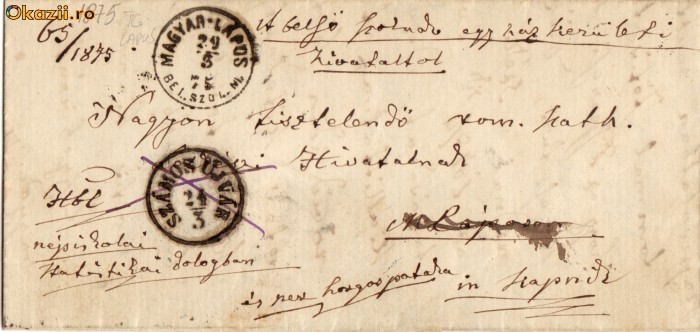 Okazii.ro
1875
65/1875
TG LAPUS
MAGYAR-LÁPOS
29
5
75
BEL. SZOL. M.
A belső szolnoki egyházkerületi
hivataltol
Nagyon tisztelendő rom. kath.
Hivatalnak
SZAMOS ÚJVÁR
24
3
Hbl
népiskolai
statistikai dologban
M Láposon
és
in Kapnik